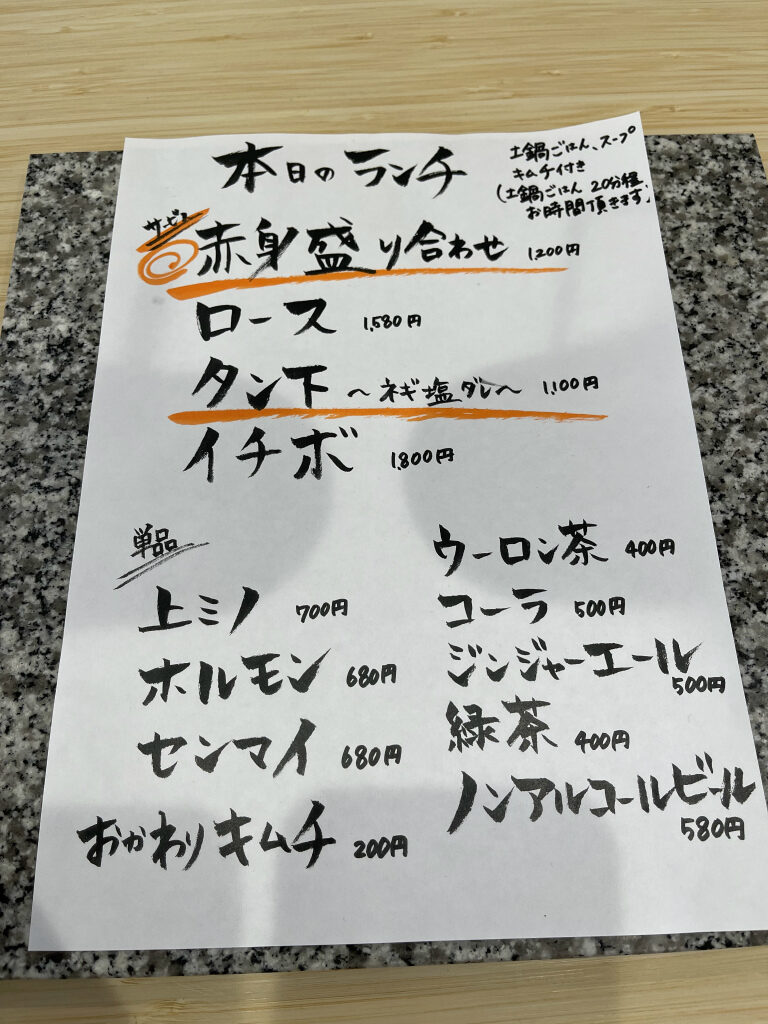 本日のランチ
土鍋ごはん、スープ
キムチ付き
(土鍋ごはん 20分程、
お時間頂きます。
サービス
赤身盛り合わせ 1,200円
ロース 1,580円
タン下 〜ネギ塩ダレ〜 1,100円
イチボ 1,800円
単品
上ミノ 700円
ホルモン 680円
センマイ 680円
おかわりキムチ 200円
ウーロン茶 400円
コーラ 500円
ジンジャーエール
500円
緑茶 400円
ノンアルコールビール
580円